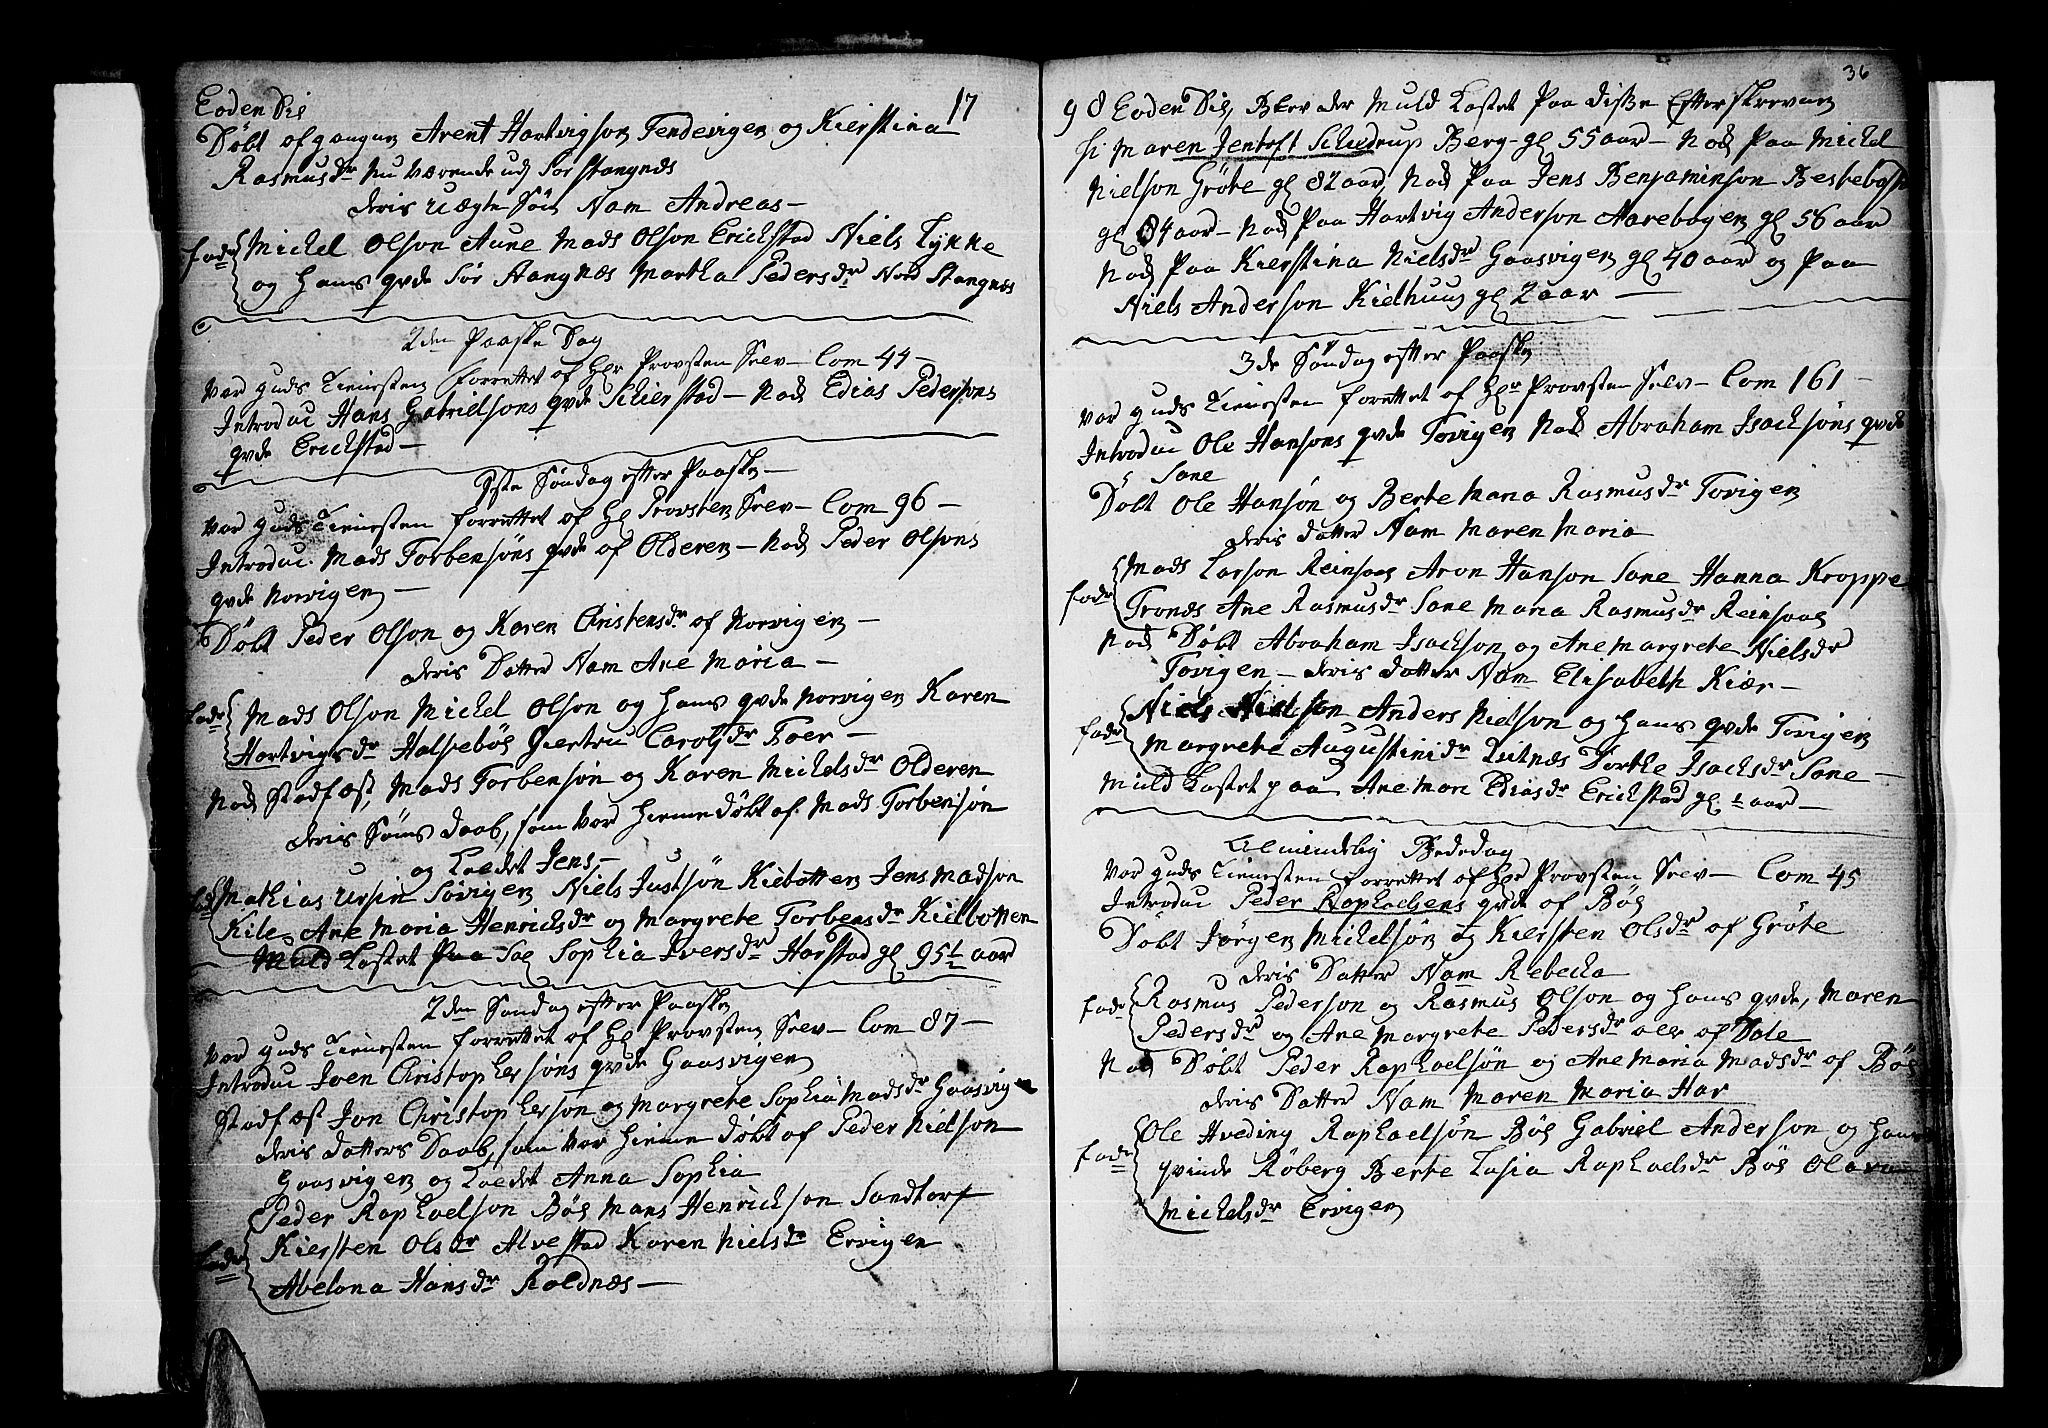 17
Eoden Die
Døbt af gangen Arent Hartvigson Fendevigen og Kierstina
Rasmusdr nu værende ud Sør Stangnæs
deris uægte Søn Nam Andreas –
fad: Michel Olson Aune Mads Olson Erickstad Niels Lykke
og Hans qvde Sør Stangnæs Martha Pedersdr Nord Stangnæs
2den Paaske Dag
Var guds Tienesten forrettet af Hr Provsten Selv – Com 44 –
Introduc Hans Gabrielsons qvde Schierstad – Nock Edias Pedersons
qvde Erickstad –
1ste Søndag efter Paaske –
Var guds Tienesten forrettet af Hr Provsten Selv – Com 96 –
Introduc. Mads Torbensøns qvde af Olderen – Nock Peder Olsons
qvde Norvigen –
Døbt Peder Olson og Karen Christensdr af Norvigen –
deris Datter Nam Ane Maria –
fadr Mads Olson Michel Olson og Hans qvde Norvigen Karen
Hartvigsdr Halsebøe Giertru Carolsdr Foer –
Nock Stadfæst, Mads Torbensøn og Karen Michelsdr Olderen
deris Søns Daab, som var Hiemedøbt af Mads Torbensøn
og Kaldet Jens –
fad: Mathias Ursin Sørvigen Niels Justsøn Kiebotten Jens Madson
Kile Ane Maria Henrichsdr og Margrete Torbensdr Kielbotten
Muld Kastet Paa Sal Sophia Iversdr Harstad gl 95½ aar
2den Søndag efter Paaske
Var guds Tienesten forrettet af Hr Provsten Selv – Com 87 –
Introduc Joen Christophersøns qvde Gaasvigen
Stadfæst Jon Christopherson og Margrete Sophia Madsdr Gaasvigen
deris Datters Daab, som var Hieme døbt af Peder Nielson
Gaasvigen og Kaldet Anna Sophia
Peder Raphaelson Bøe Mans Henrichson Sandtorf
fadr Kiersten Olsdr Alvestad Karen Nielsdr Ervigen
Abelona Hansdr Roldnæs –
36
98 Eoden Die, Blev der Muld Kastet Paa disse Efterskrevne
Sr. Maren Jentoft Schidrup Berg – gl 55 aar – Nock Paa Michel
Nielson Grøte gl 82 aar, Nock Paa Jens Benjaminson
gl 84 aar – Nock Paa Hartvig Anderson Aarebogen gl 56 aar
Nock Paa Kierstina Nielsdr Gaasvigen gl 40 aar og Paa
Niels Anderson Kielhuug gl 2 aar –
3de Søndag efter Paaske
Var guds Tienesten forrettet af Hr Provsten Selv – Com 161 –
Introduc Ole Hansons qvde Tovigen Nock Abraham Isacksøns qvde
Sane
Døbt Ole Hansøn og Berte Mana Rasmusdr Tovigen
deris Datter Nam Maren Maria
fadr Mads Larson Reinsaas Aron Hanson Sane Hanna Kroppe
Tronæs Ane Rasmusdr Sane Mana Rasmusdr Reinsaas
Nock Døbt Abraham Isackson og Ane Margrete Nielsdr
Tovigen – deris Datter Nam Elisabeth Kiær –
fadr Niels Nielson Anders Nielson og Hans qvde Tovigen
Margrete Augustinidr Lutnæs Dorthe Isachsdr Sane –
Muld Kastet paa Ane Mari Ediasdr Erickstad gl. 1 aar –
Almindelig Bededag
Var guds Tienesten forrettet af Hr Provsten Selv – Com 45
Introduc Peder Raphaelsens qvde af Bøe
Døbt Jørgen Michelsøn og Kiersten Olsdr af Grøte
deris Datter Nam Rebecka
fadr Rasmus Pederson og Rasmus Olson og Hans qvde, Maren
Pedersdr og Ane Margrete Pedersdr alle af Dale
Nock Døbt Peder Raphaelsøn og Ane Maria Madsdr af Bøe
deris Datter Nam Maren Maria Har
fadr Ole Hveding Raphaelsøn Bøe Gabriel Anderson og Hans
qvinde Røberg Berte Lusia Raphaelsdr Bøe Olava
Michelsdr Ervigen